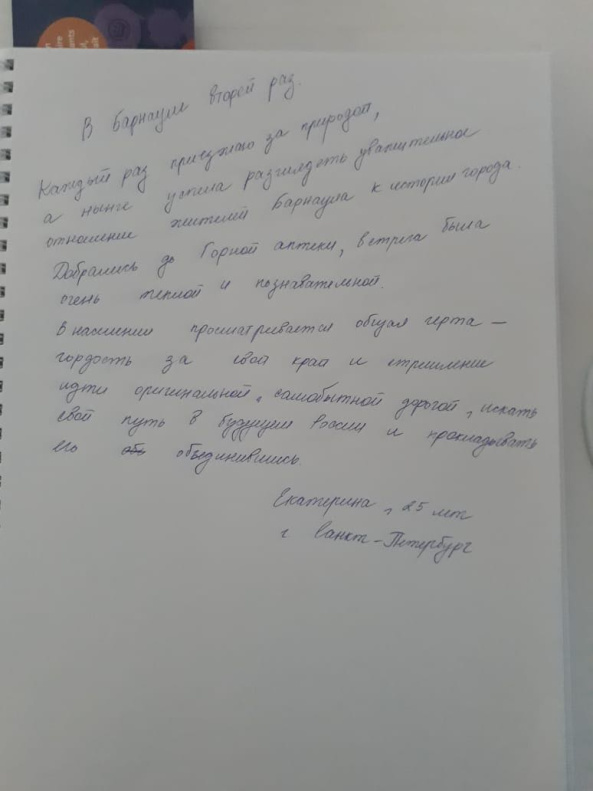 В Барнауле второй раз.
Каждый раз приезжаю за природой,
а ныне успела разглядеть уважительное
отношение жителей Барнаула к истории города.
Добрались до Горной аптеки, встреча была
очень теплой и познавательной.
В населении просматривается общая черта —
гордость за свой край и стремление
идти оригинальной, самобытной дорогой, искать
свой путь в будущем России и прокладывать
его объединившись.
Екатерина, 25 лет
г Санкт-Петербург